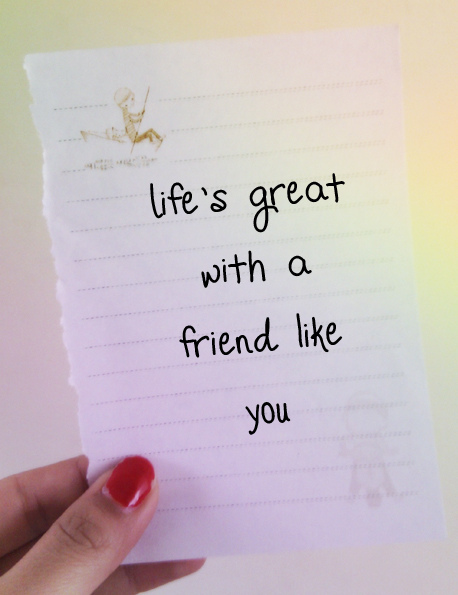 life's great
with a
friend like
you